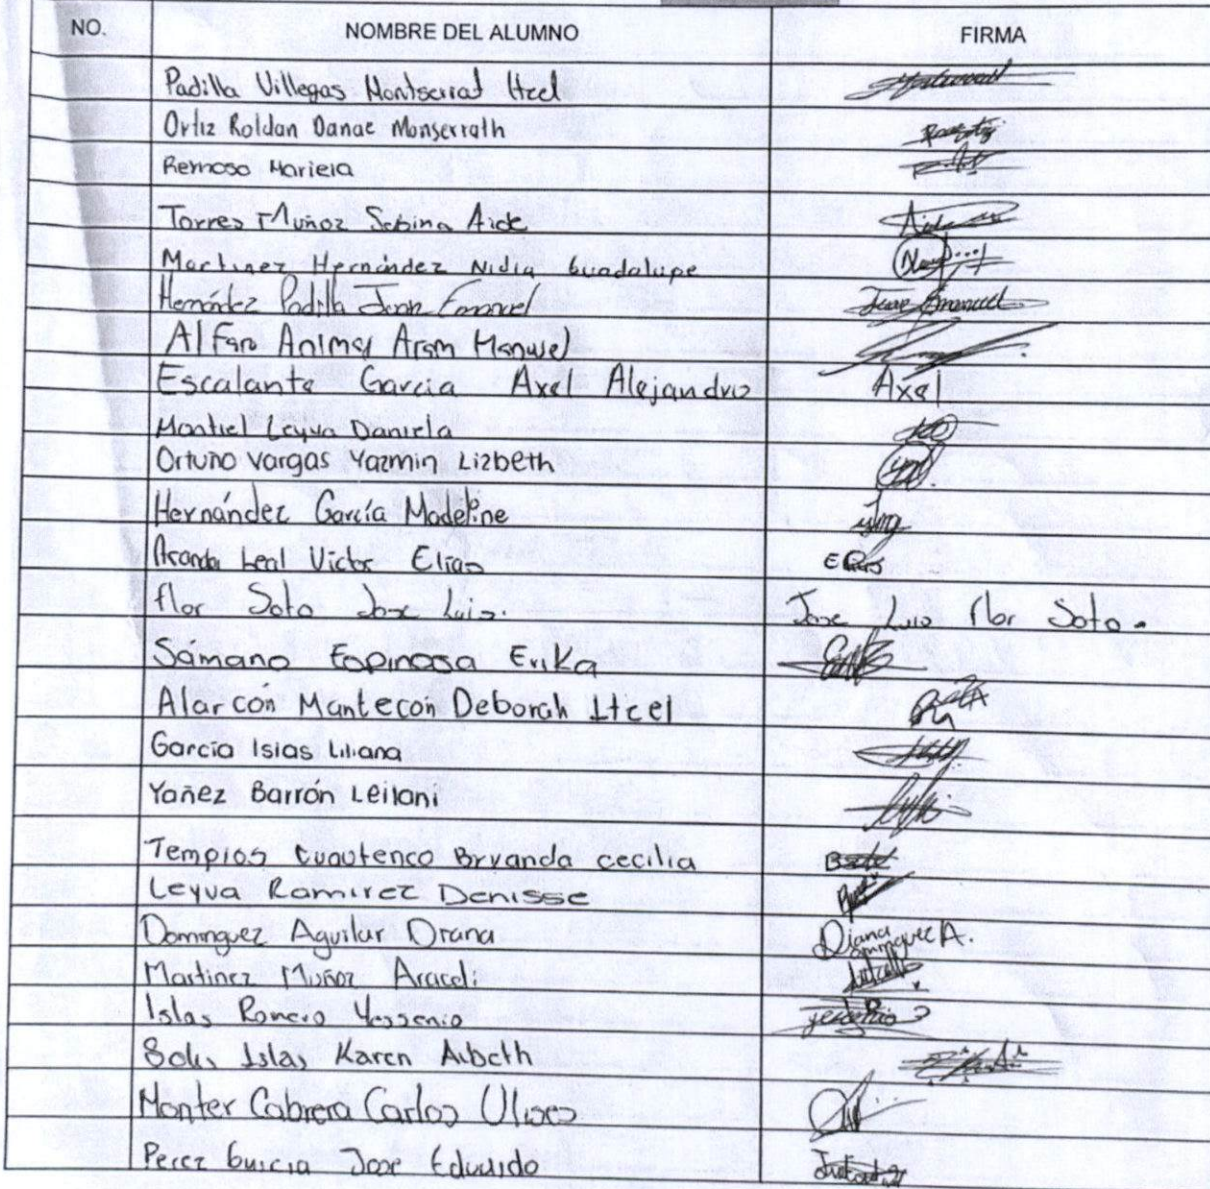 NO. NOMBRE DEL ALUMNO FIRMA
Padilla Villegas Montserrat Itzel
Ortiz Roldan Danae Monserrath
Reinoso Mariela
Torres Muñoz Sabina Aide
Martinez Hernández Nidia Guadalupe
Hernández Padilla Juan Emanuel Juan Emanuel
Alfaro Aram Manuel
Escalante Garcia Axel Alejandro Axel
Montiel Leyva Daniela
Ortuño Vargas Yazmin Lizbeth
Hernández García Madeline
Aranda Leal Victor Elias Elias
Flor Soto Jose Luis. Jose Luis Flor Soto.
Sámano Espinosa Erika
Alarcón Mantecón Deborah Itzel
García Islas Liliana
Yañez Barrón Leilani
Templos Cuautenco Bryanda cecilia
Leyva Ramirez Denisse
Dominguez Aguilar Diana Diana Dominguez A.
Martinez Muñoz Araceli
Islas Romero Yessenia
Solis Islas Karen Aibeth
Monter Cabrera Carlos Ulises
Perez Garcia Jose Eduardo